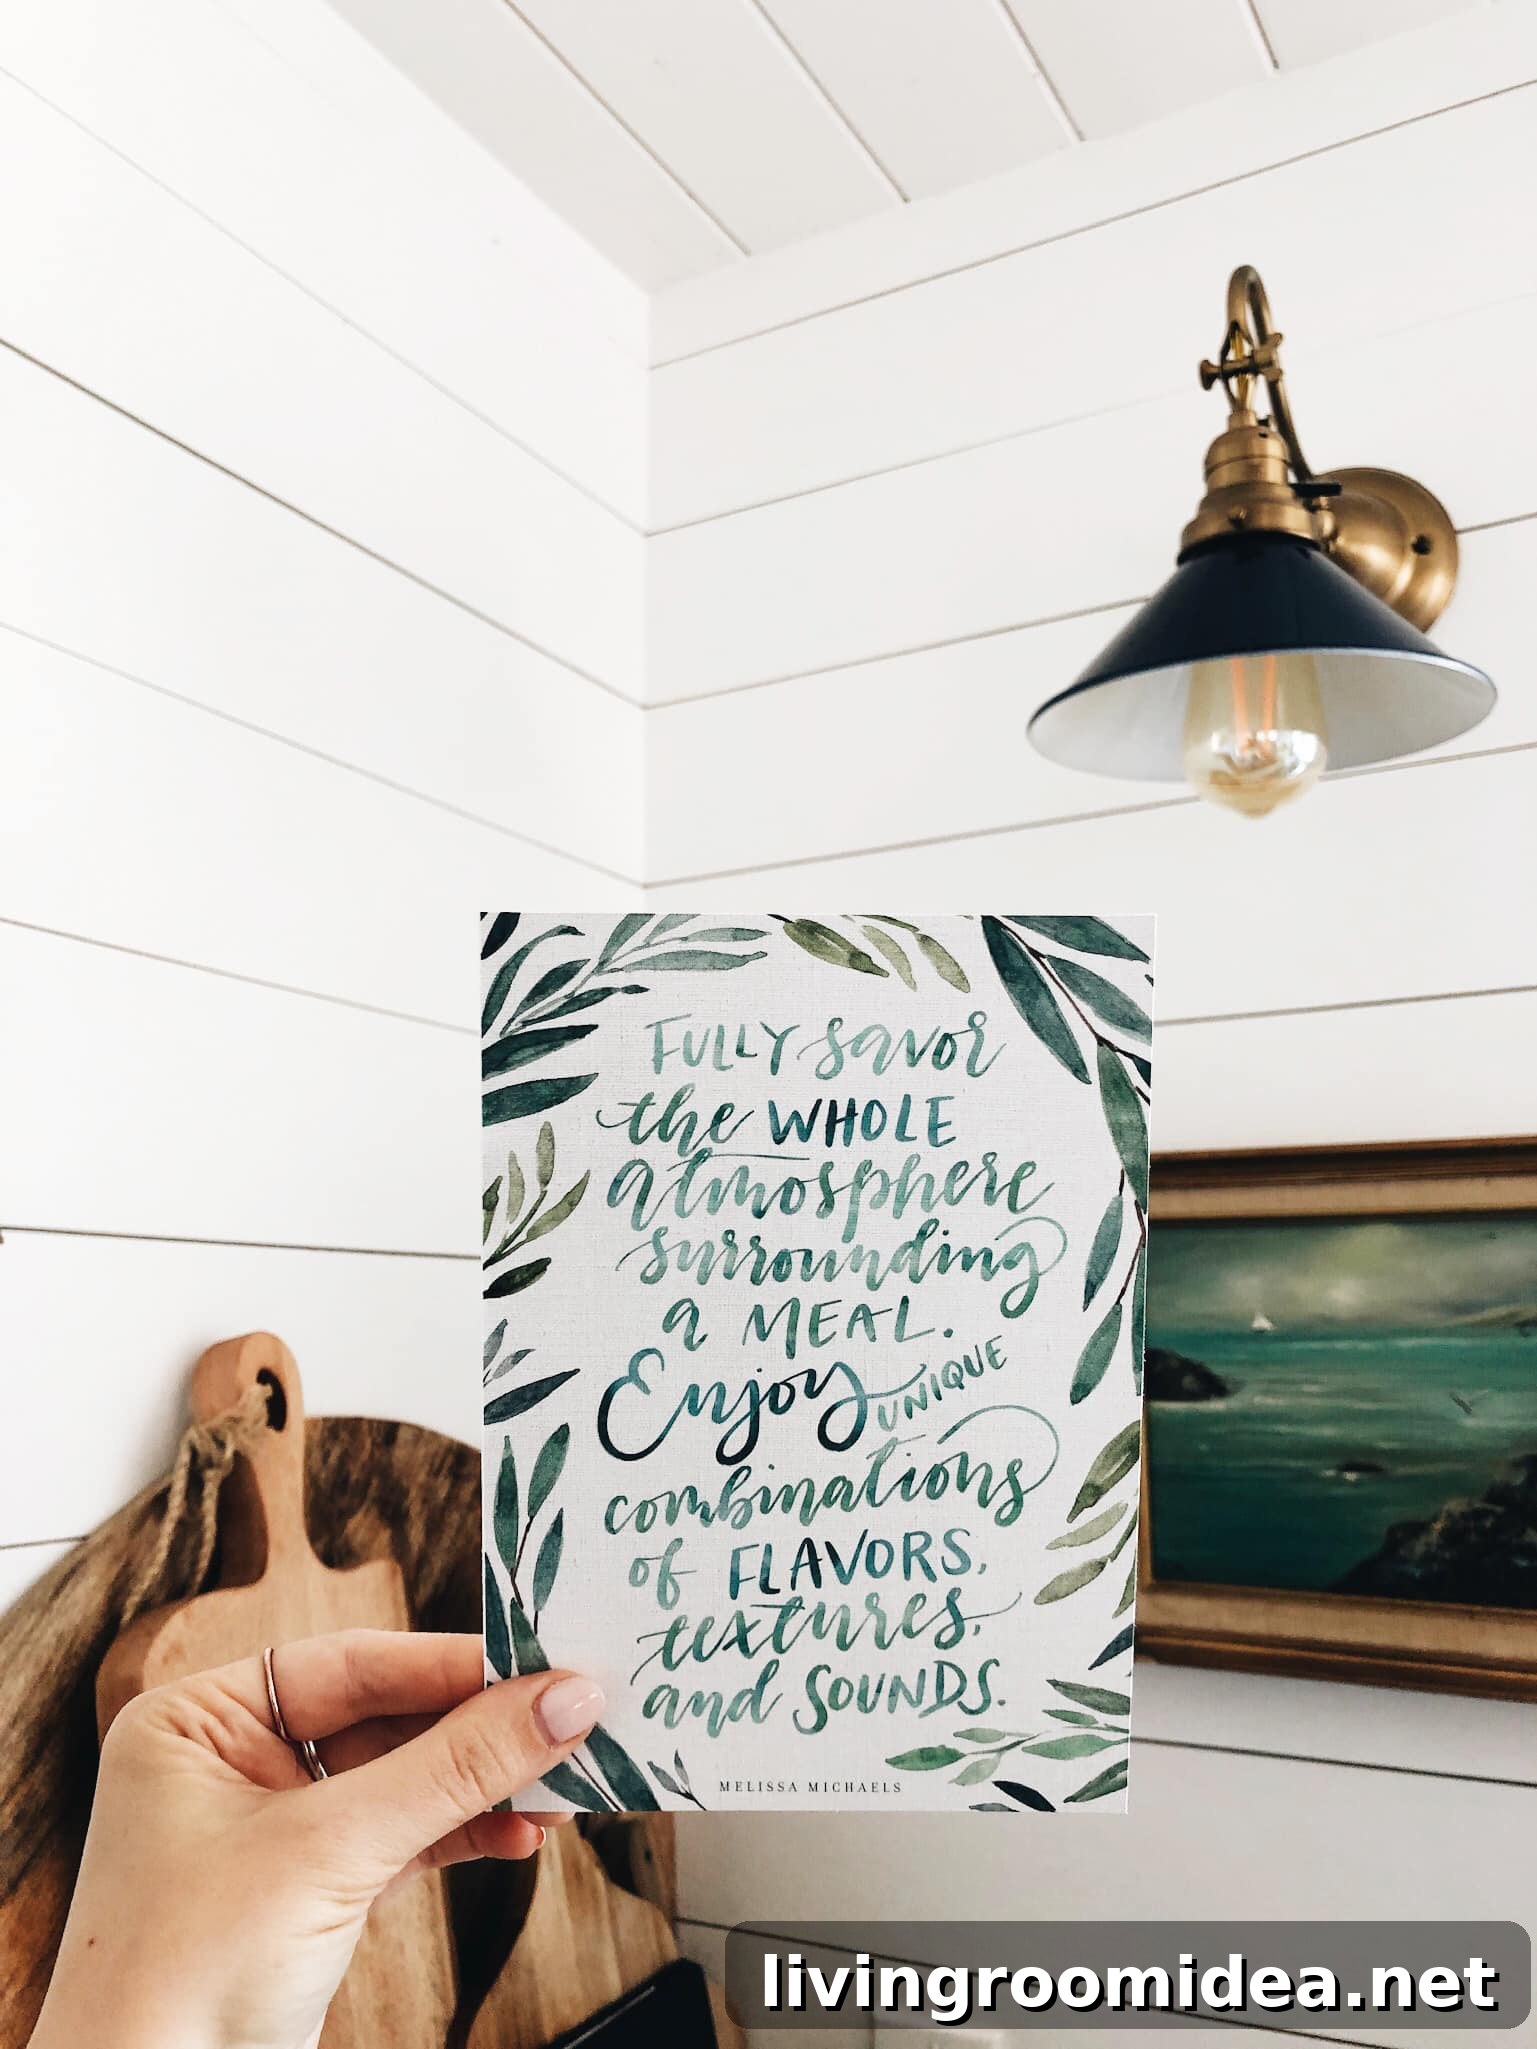 FULLY savor
the WHOLE
atmosphere
surrounding
a MEAL.
Enjoy UNIQUE
combinations
of FLAVORS,
textures,
and SOUNDS.
MELISSA MICHAELS
livingroomidea.net